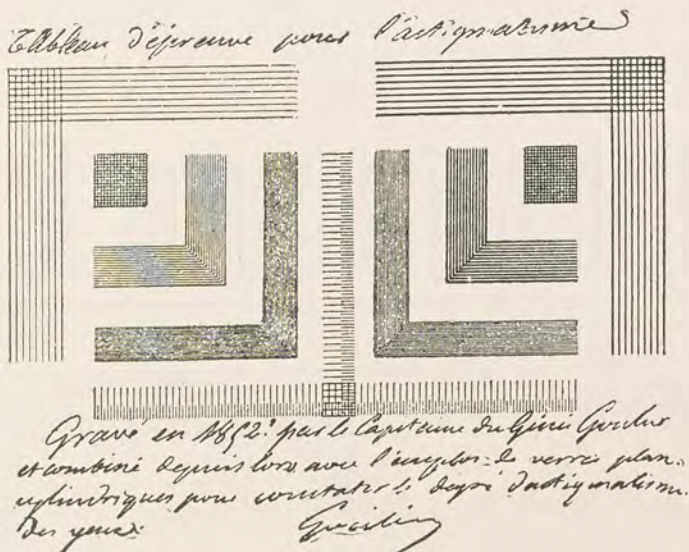 Tableau d'épreuve pour l'astigmatisme
Gravé en 1852. par le Capitaine du Génie Goulier
et combiné depuis lors avec l'emploi de verres plan-
cylindriques pour constater le degré d'astigmatisme
des yeux.
Goulier